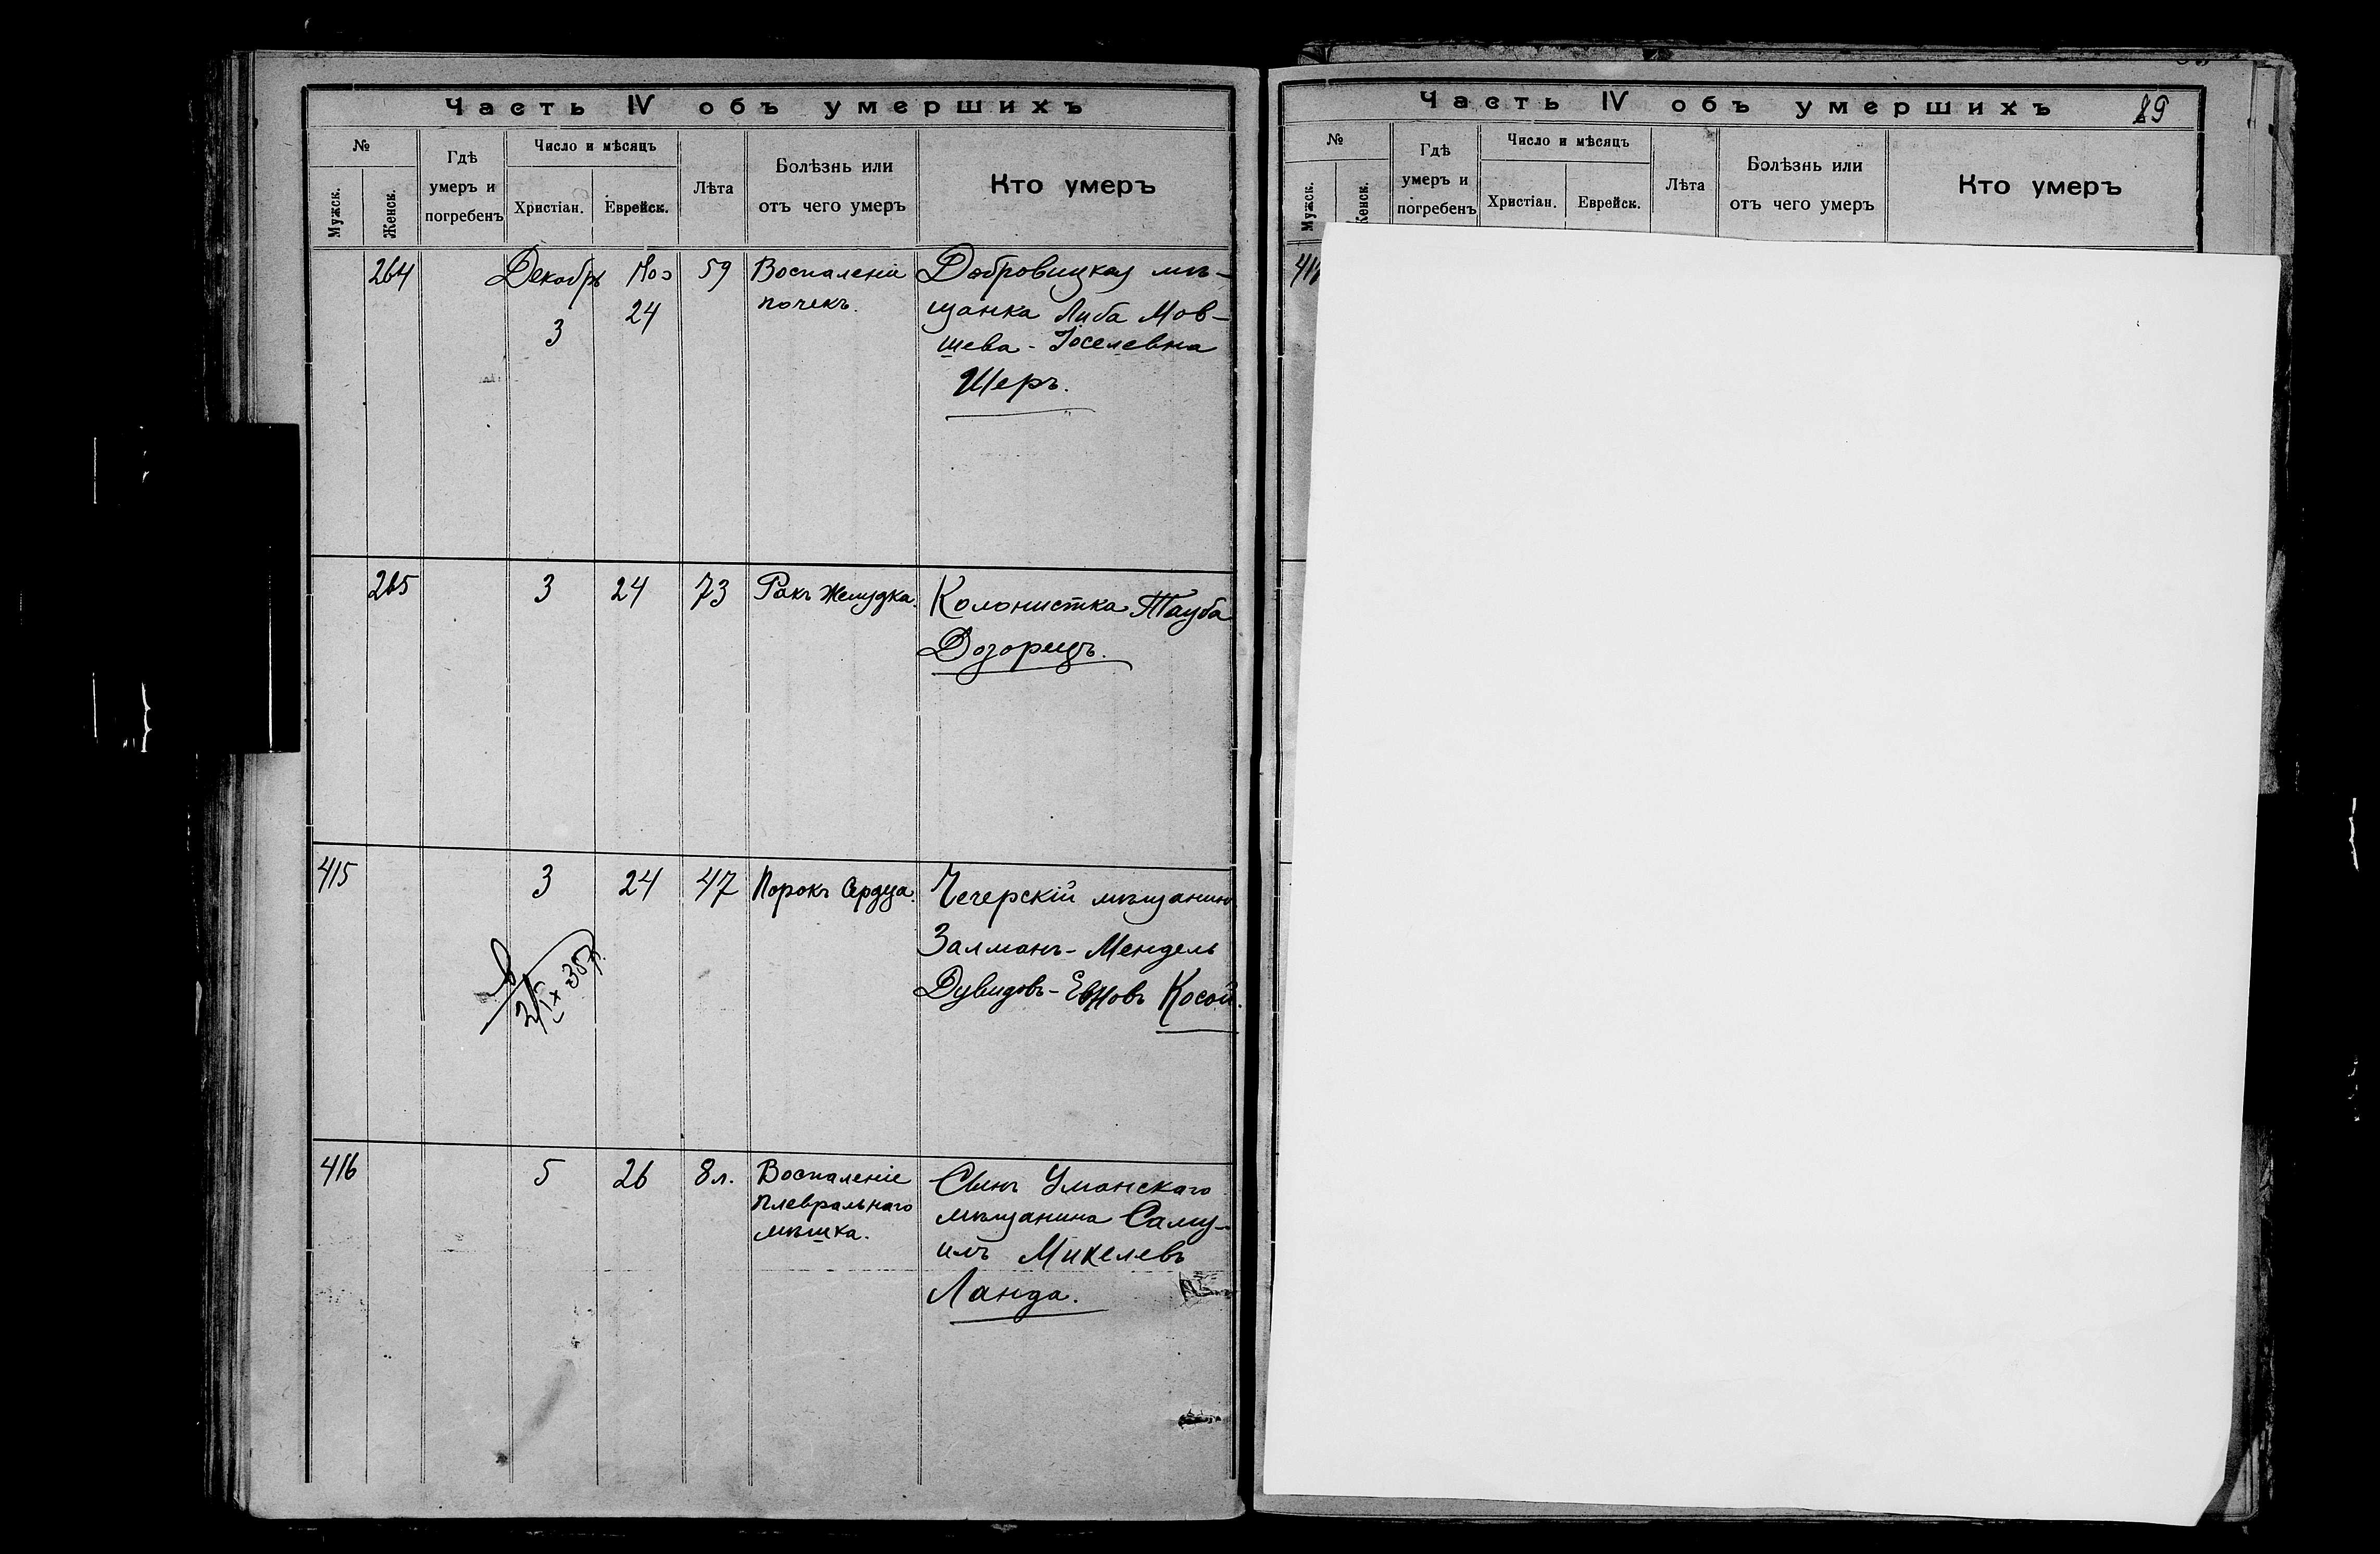 Часть IV объ умершихъ
№
Мужск.
Женск.
Гдѣ
умеръ и
погребенъ
Число и мѣсяцъ
Христіан.
Еврейск.
Лѣта
Болѣзнь или
отъ чего умеръ
Кто умеръ
264
Декабрь
3
24
59
Воспаленіе
почекъ.
Добровицкая мѣ-
щанка Либа Мов-
шева-Іоселевна
Шеръ.
265
3
24
73
Ракъ Желудка.
Колонистка Тауба
Дозорецъ.
415
3
24
47
Порокъ Сердца.
Чечерскій мѣщанинъ
Залманъ-Мендель
Дувидовъ-Евновъ Косой.
416
5
26
8 л.
Воспаленіе
плевральнаго
мѣшка.
Сынъ Уманскаго
мѣщанина Саму-
илъ Микелевъ
Ланда.
Часть IV объ умершихъ
89
№
Мужск.
Женск.
Гдѣ
умеръ и
погребенъ
Число и мѣсяцъ
Христіан.
Еврейск.
Лѣта
Болѣзнь или
отъ чего умеръ
Кто умеръ